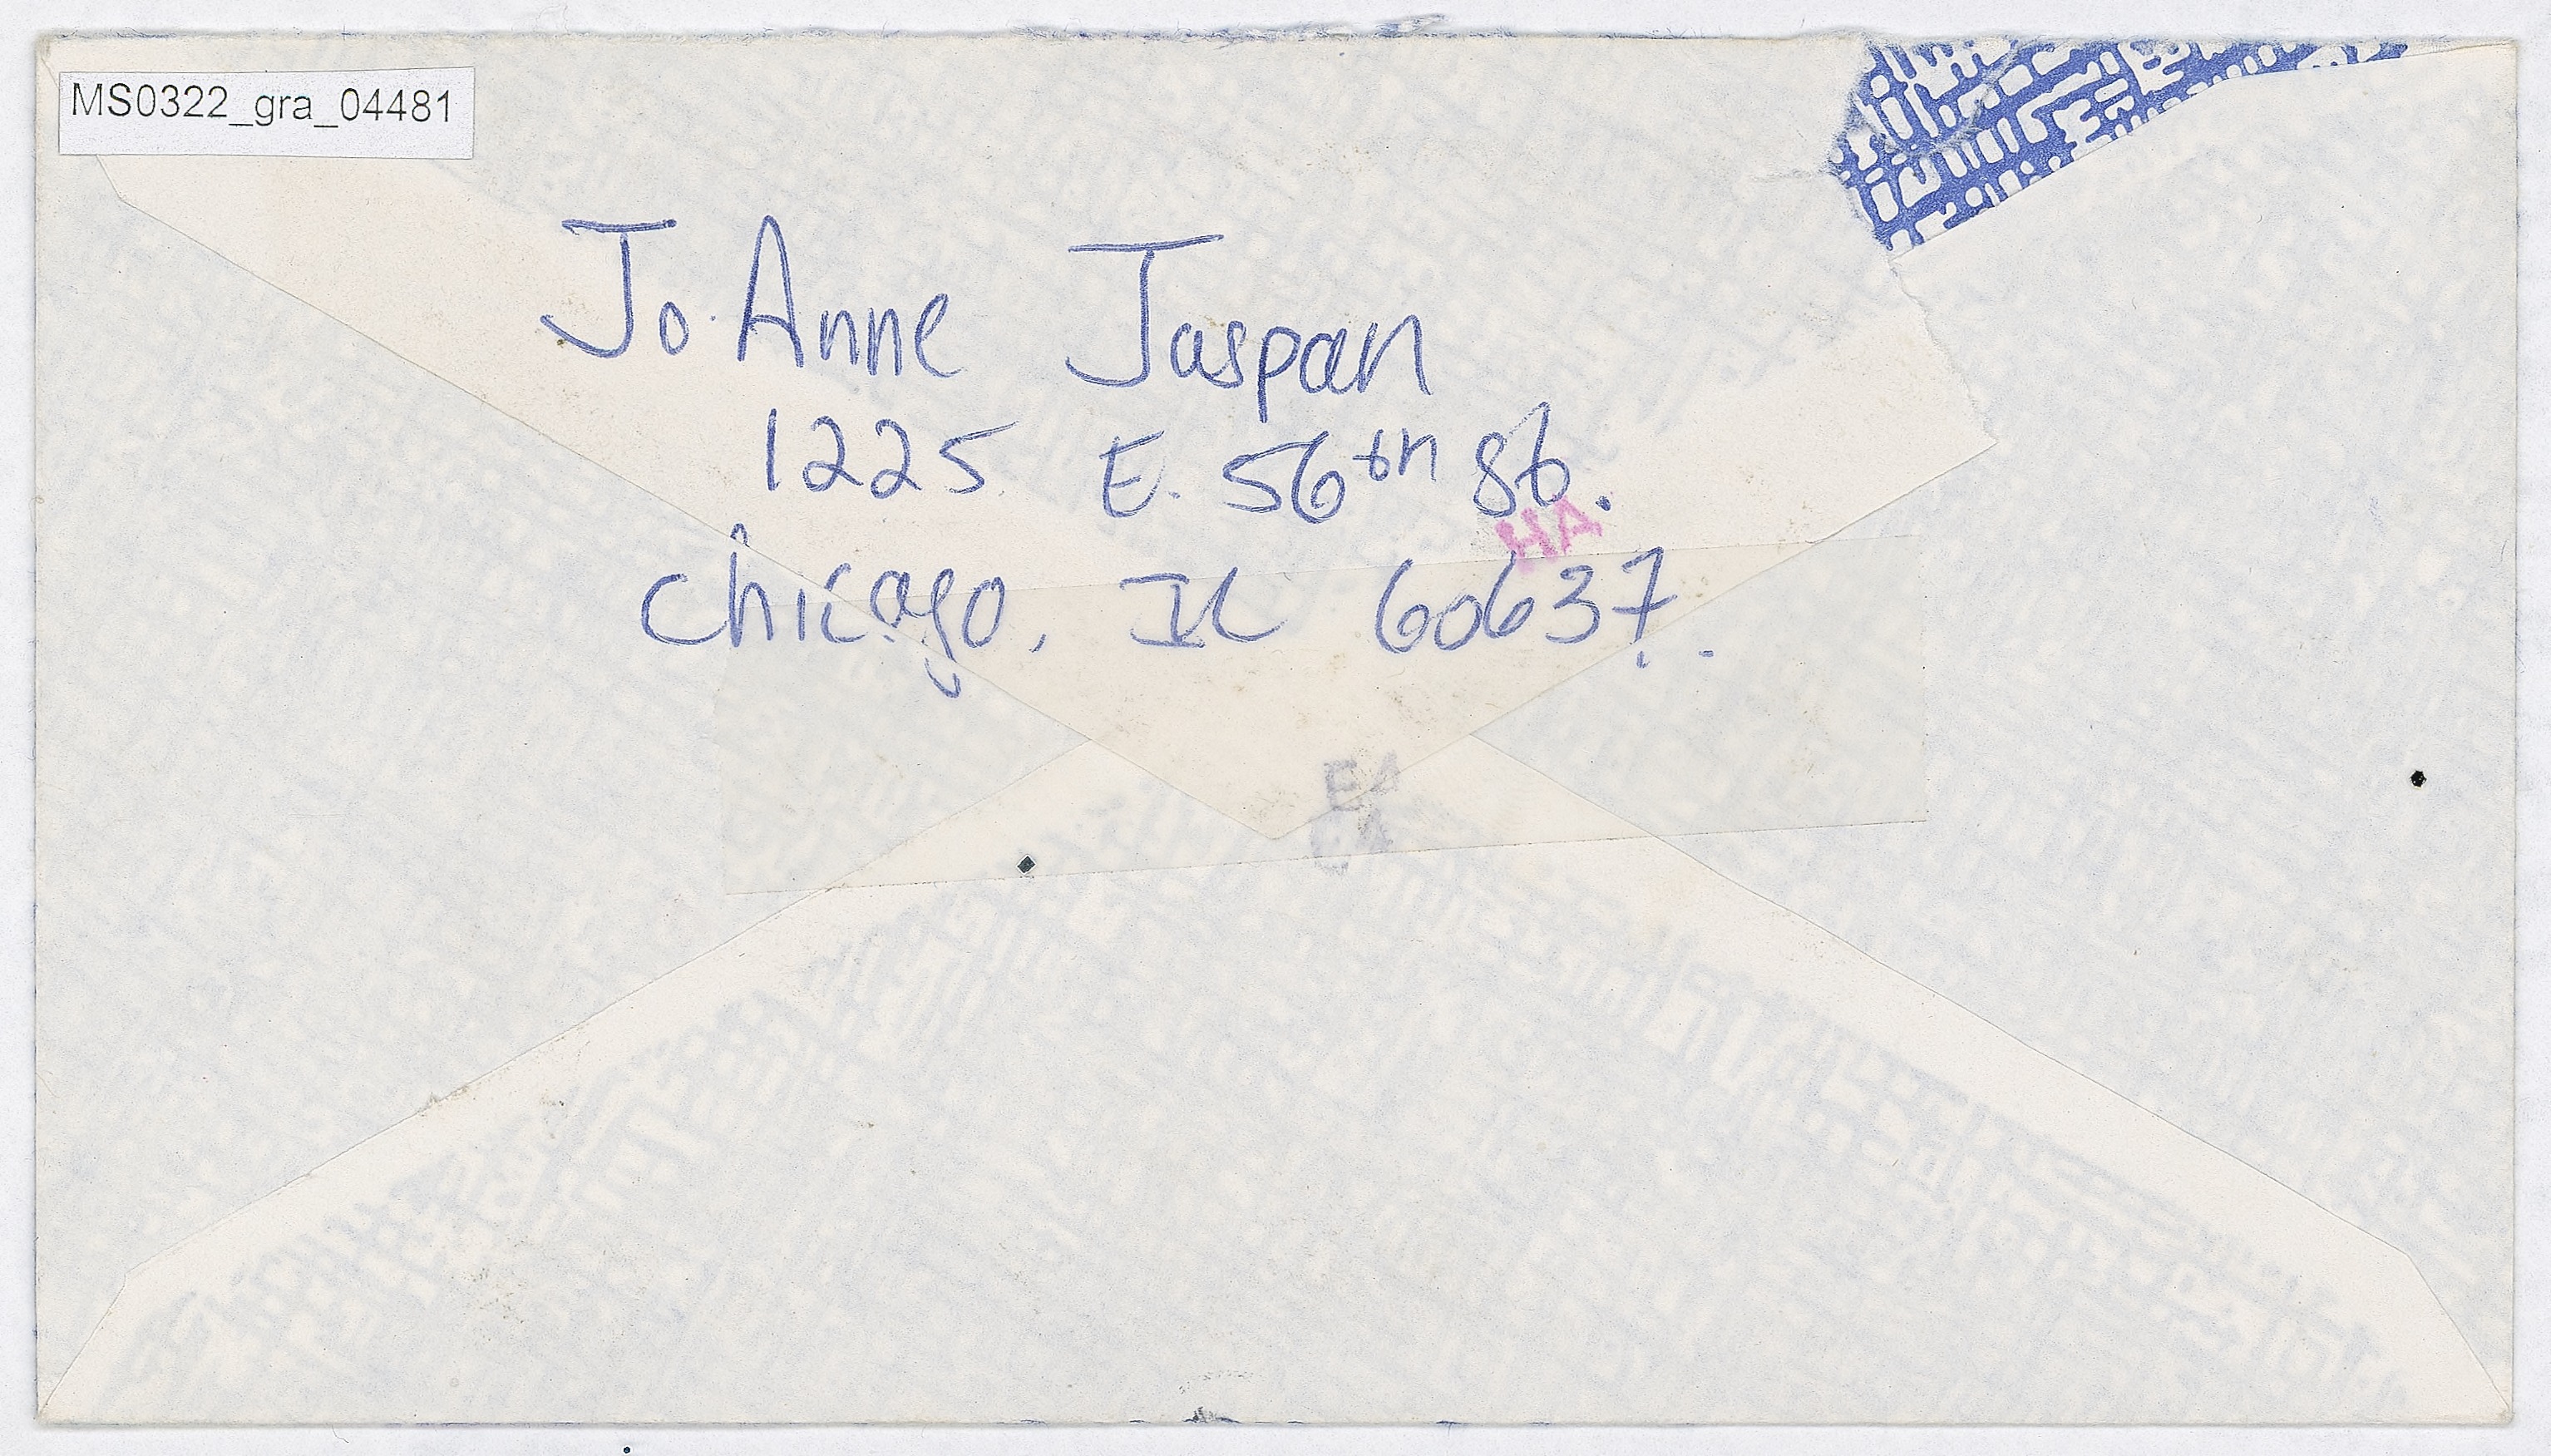 MS0322_gra_04481
Jo Anne Jaspan
1225 E. 56th St.
Chicago, IL 60637.
HA